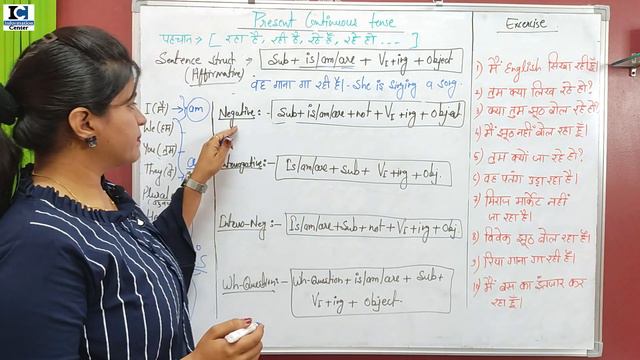 IC
Information
Center
Present Continuous tense
पहचान → [ रहा है, रही है, रहे है, रहे हो ... ]
Sentence Struct → Sub + is/am/are + V₁+ing + Object
(Affirmative)
वह गाना गा रही है। - She is singing a song.
I (मैं) → am
We (हम)
You (तुम)
They (वे)
Plural
is
Negative :- Sub + is/am/are + not + V₁ + ing + Object
Interrogative :- Is/am/are + Sub + V₁ + ing + Obj.
Interro-Neg :- Is/am/are + Sub + not + V₁ + ing + Obj
Wh-Question :- Wh-Question + is/am/are + Sub +
V₁ + ing + Object.
Exercise
1) मैं English सिखा रही हूँ।
2) तुम क्या लिख रहे हो?
3) क्या तुम झूठ बोल रहे हो?
4) मैं झूठ नहीं बोल रहा हूँ।
5) तुम क्यों जा रहे हो?
6) वह पतंग उड़ा रहा है।
7) मिराज मार्केट नहीं
जा रहा है।
8) विवेक झूठ बोल रहा है।
9) रिया गाना गा रही है।
10) मैं बस का इंतजार कर
रहा हूँ।